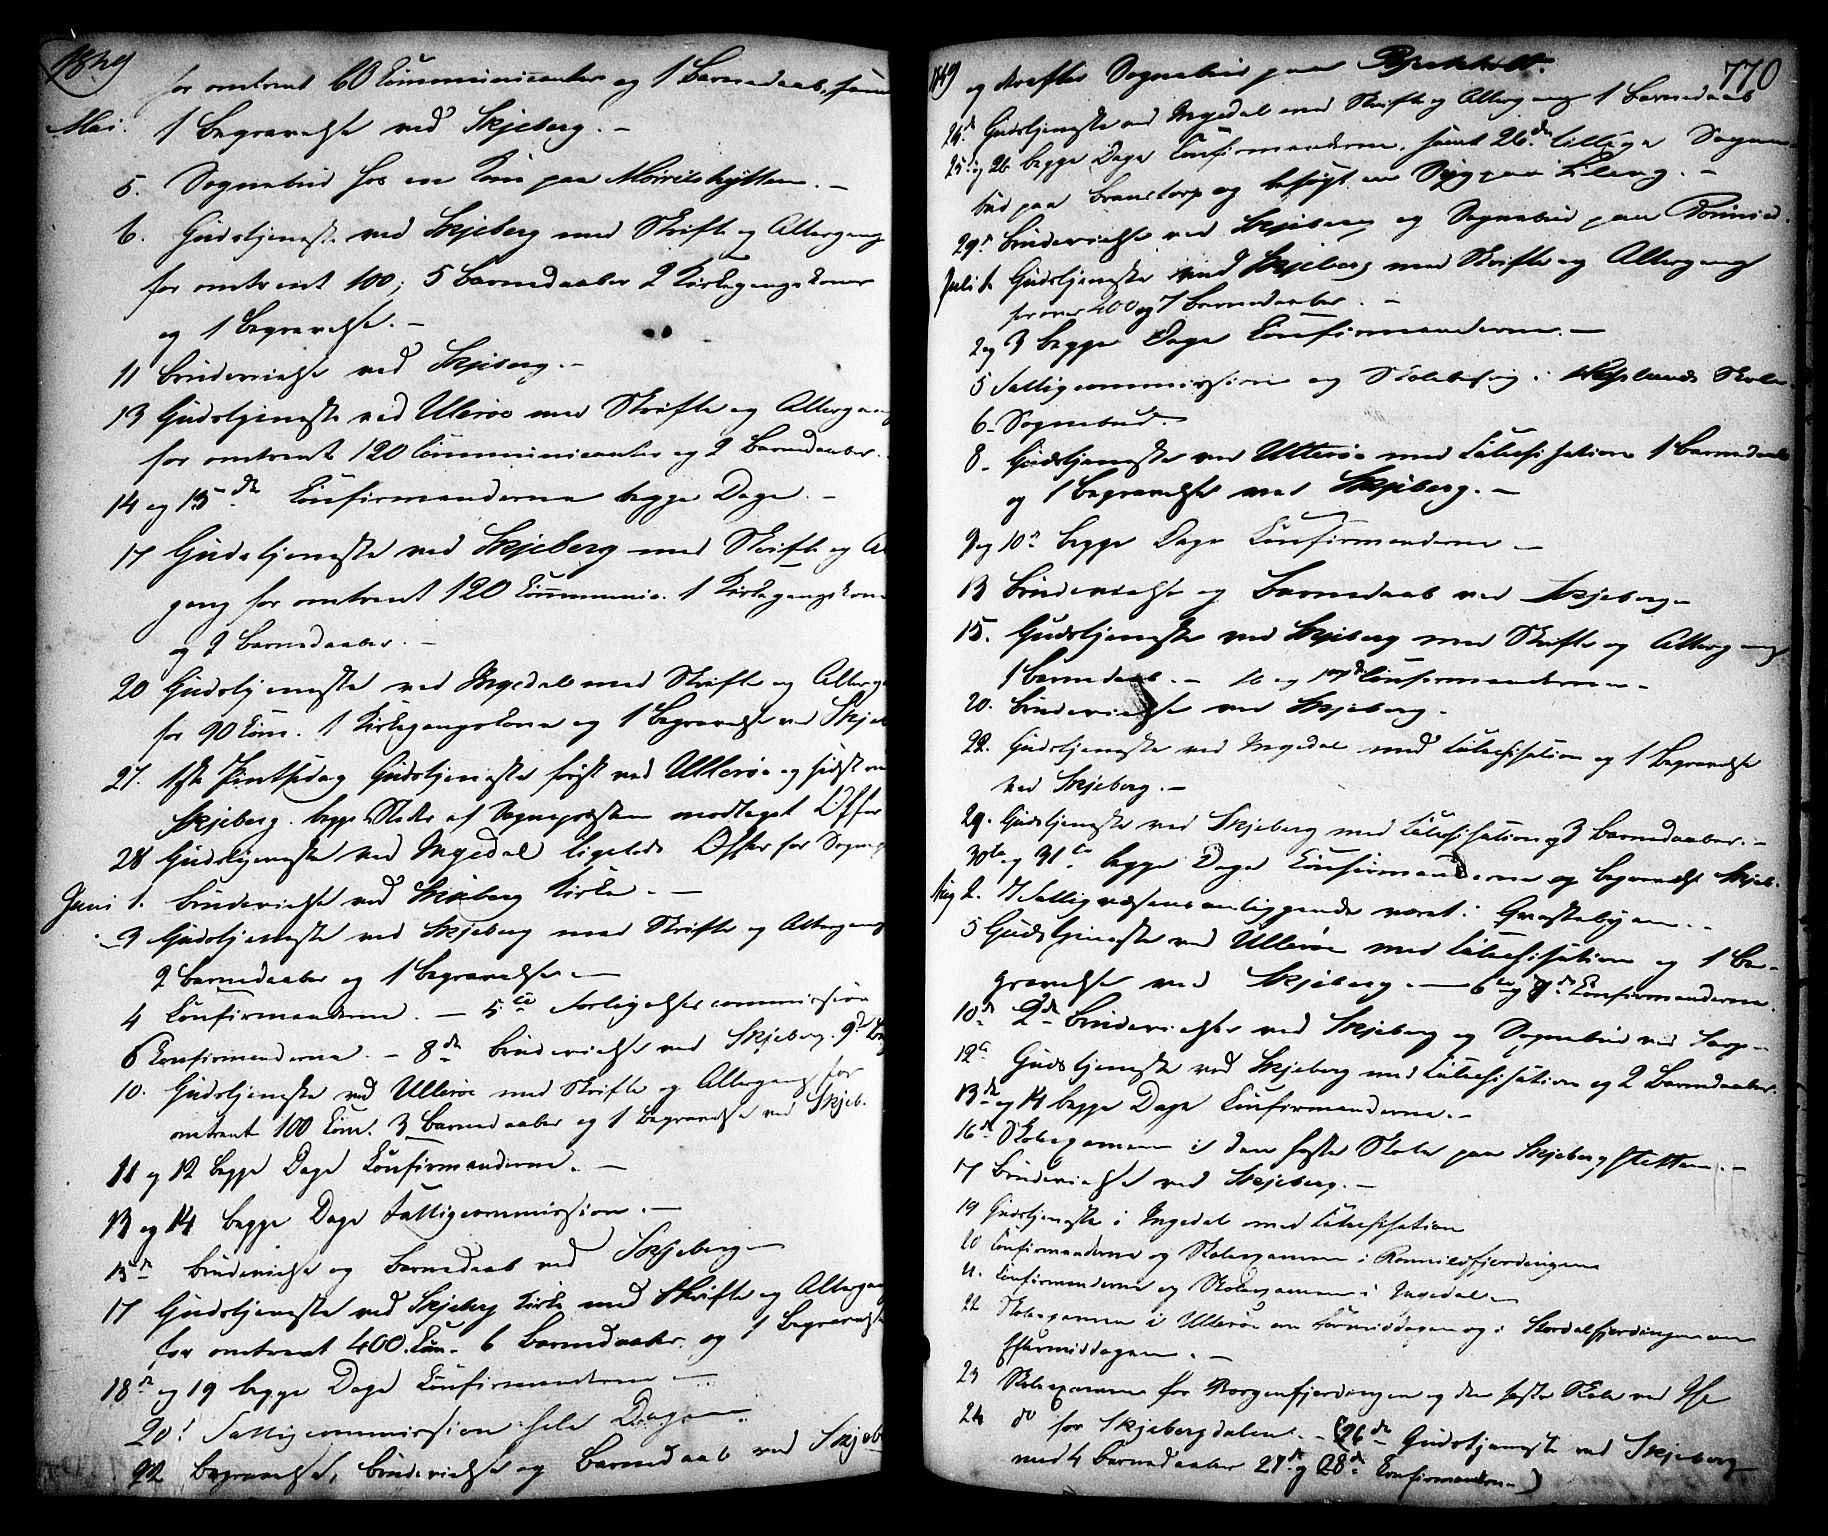 1849
for omtrent 60 Communicanter og 1 Barnedaab, samt
Mai. 1 Begravelse ved Skjeberg. –
5. Sognebud hos en Kone paa
6. Gudstjeneste ved Skjeberg med Skrifte og Altergang
for omtrent 100, 5 Barnedaaber 2 Kirkegangskoner
og 1 Begravelse. –
11 Brudevielse ved Skjeberg. –
13 Gudstjeneste ved Ullerøe med Skrifte og Altergang
for omtrent 120 Communicanter og 2 Barnedaaber.
14 og 15de Confirmanderne begge Dage. –
17 Gudstjeneste ved Skjeberg med Skrifte og Al
gang for omtrent 120 Communic. 1 Kirkegangskone
og 2 Barnedaaber. –
20 Gudstjeneste ved Ingedal med Skrifte og Alterga
for 90 Com. 1 Kirkegangskone og 1 Begravelse ved Skjeb
27. 1ste Pintsedag Gudstjeneste først ved Ullerøe og sidst ved
Skjeberg. begge Steder af Sognepræsten modtaget Offer
28 Gudstjeneste ved Ingedal ligeleds Offer for Sognep
Juni 1. Brudevielse ved Skjeberg Kirke. –
3 Gudstjeneste ved Skjeberg med Skrifte og Altergang
2 Barnedaaber og 1 Begravelse. –
4 Confirmanderne. – 5te Forligelsescommission
6 Confirmanderne. – 8de Brudevielse ved Skjeberg. 9de
10. Gudstjeneste ved Ullerøe med Skrifte og Altergang for
omtrent 100 Com. 3 Barnedaaber og 1 Begravelse ved Skjeb.
11 og 12 begge Dage Confirmanderne. –
13 og 14 begge Dage Fattigcommission. –
15de Brudevielse og Barnedaab ved Skjeberg –
17 Gudstjeneste ved Skjeberg Kirke med Skrifte og Altergang
for omtrent 400 Com. 6 Barnedaaber og 1 Begravelse
18de og 19 begge Dage Confirmanderne –
20. Fattigcommission hele Dagen.
22 Begravelse, Brudevielse og Barnedaab ved Skjeb
1849 770
og derefter Sognebud paa
24de Gudstjeneste ved Ingedal med Skrifte og Altergang 1 Barnedaab
25 og 26 begge Dage Confirmanderne, samt 26de tillige Sogne-
bud paa og besøgt en Syg paa
29de Brudevielse ved Skjeberg og Sognebud paa
Juli 1. Gudstjeneste ved Skjeberg med Skrifte og Altergang
for over 400 og 7 Barnedaaber. –
2 og 3 begge Dage Confirmanderne. –
5 Fattigcommission og Skolebesøg i Skole
6. Sognebud.
8. Gudstjeneste ved Ullerøe med Catechisation 1 Barnedaab
og 1 Begravelse ved Skjeberg. –
9 og 10de begge Dage Confirmanderne –
13 Brudevielse og Barnedaab ved Skjeberg –
15. Gudstjeneste ved Skjeberg med Skrifte og Altergang
1 Barnedaab. – 16 og 17de Confirmanderne –
20. Brudevielse ved Skjeberg.
22. Gudstjeneste ved Ingedal med Catechisation og 1 Begravelse
ved Skjeberg. –
29. Gudstjeneste ved Skjeberg med Catechisation og 3 Barnedaaber. –
30te og 31te begge Dage Confirmanderne og Begravelse Skjeb.
Aug 2. I Fattigvæsens anliggende været i
5 Gudstjeneste ved Ullerøe med Catechisation og 1 Be-
gravelse ved Skjeberg. – 6te og 7de Confirmanderne.
10de 2de Brudevielser ved Skjeberg og Sognebud ved
12te Gudstjeneste ved Skjeberg med Catechisation og 2 Barnedaaber.
13de og 14 begge Dage Confirmanderne. –
16de Skoleexamen i den faste Skole paa Skjebergsletten. –
17 Brudevielse ved Skjeberg. –
19 Gudstjeneste i Ingedal med Catechisation
20 Confirmanderne og Skoleexamen i
21. Confirmanderne og Skoleexamen i Ingedal –
22 Skoleexamen i Ullerøe om Formiddagen og i Stordalfjerdingen om
Eftermiddagen. –
23 Skoleexamen for Borgenfjerdingen og den faste Skole ved Ise
24 do for Skjebergdalen. – (26de Gudstjeneste ved Skjeberg
med 4 Barnedaaber 27de og 28de Confirmanderne –)